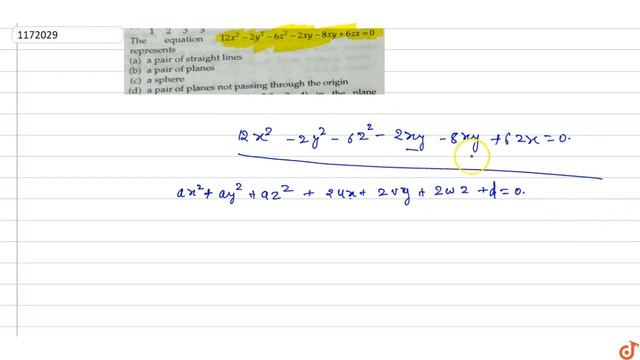 1172029
1 2 3 3
The equation 12x² − 2y² − 6z² − 2xy − 8xy + 6zx = 0
represents
(a) a pair of straight lines
(b) a pair of planes
(c) a sphere
(d) a pair of planes not passing through the origin
in the plane
12x² − 2y² − 6z² − 2xy − 8xy + 6zx = 0.
ax² + ay² + az² + 2ux + 2vy + 2wz + d = 0.
doubtnut